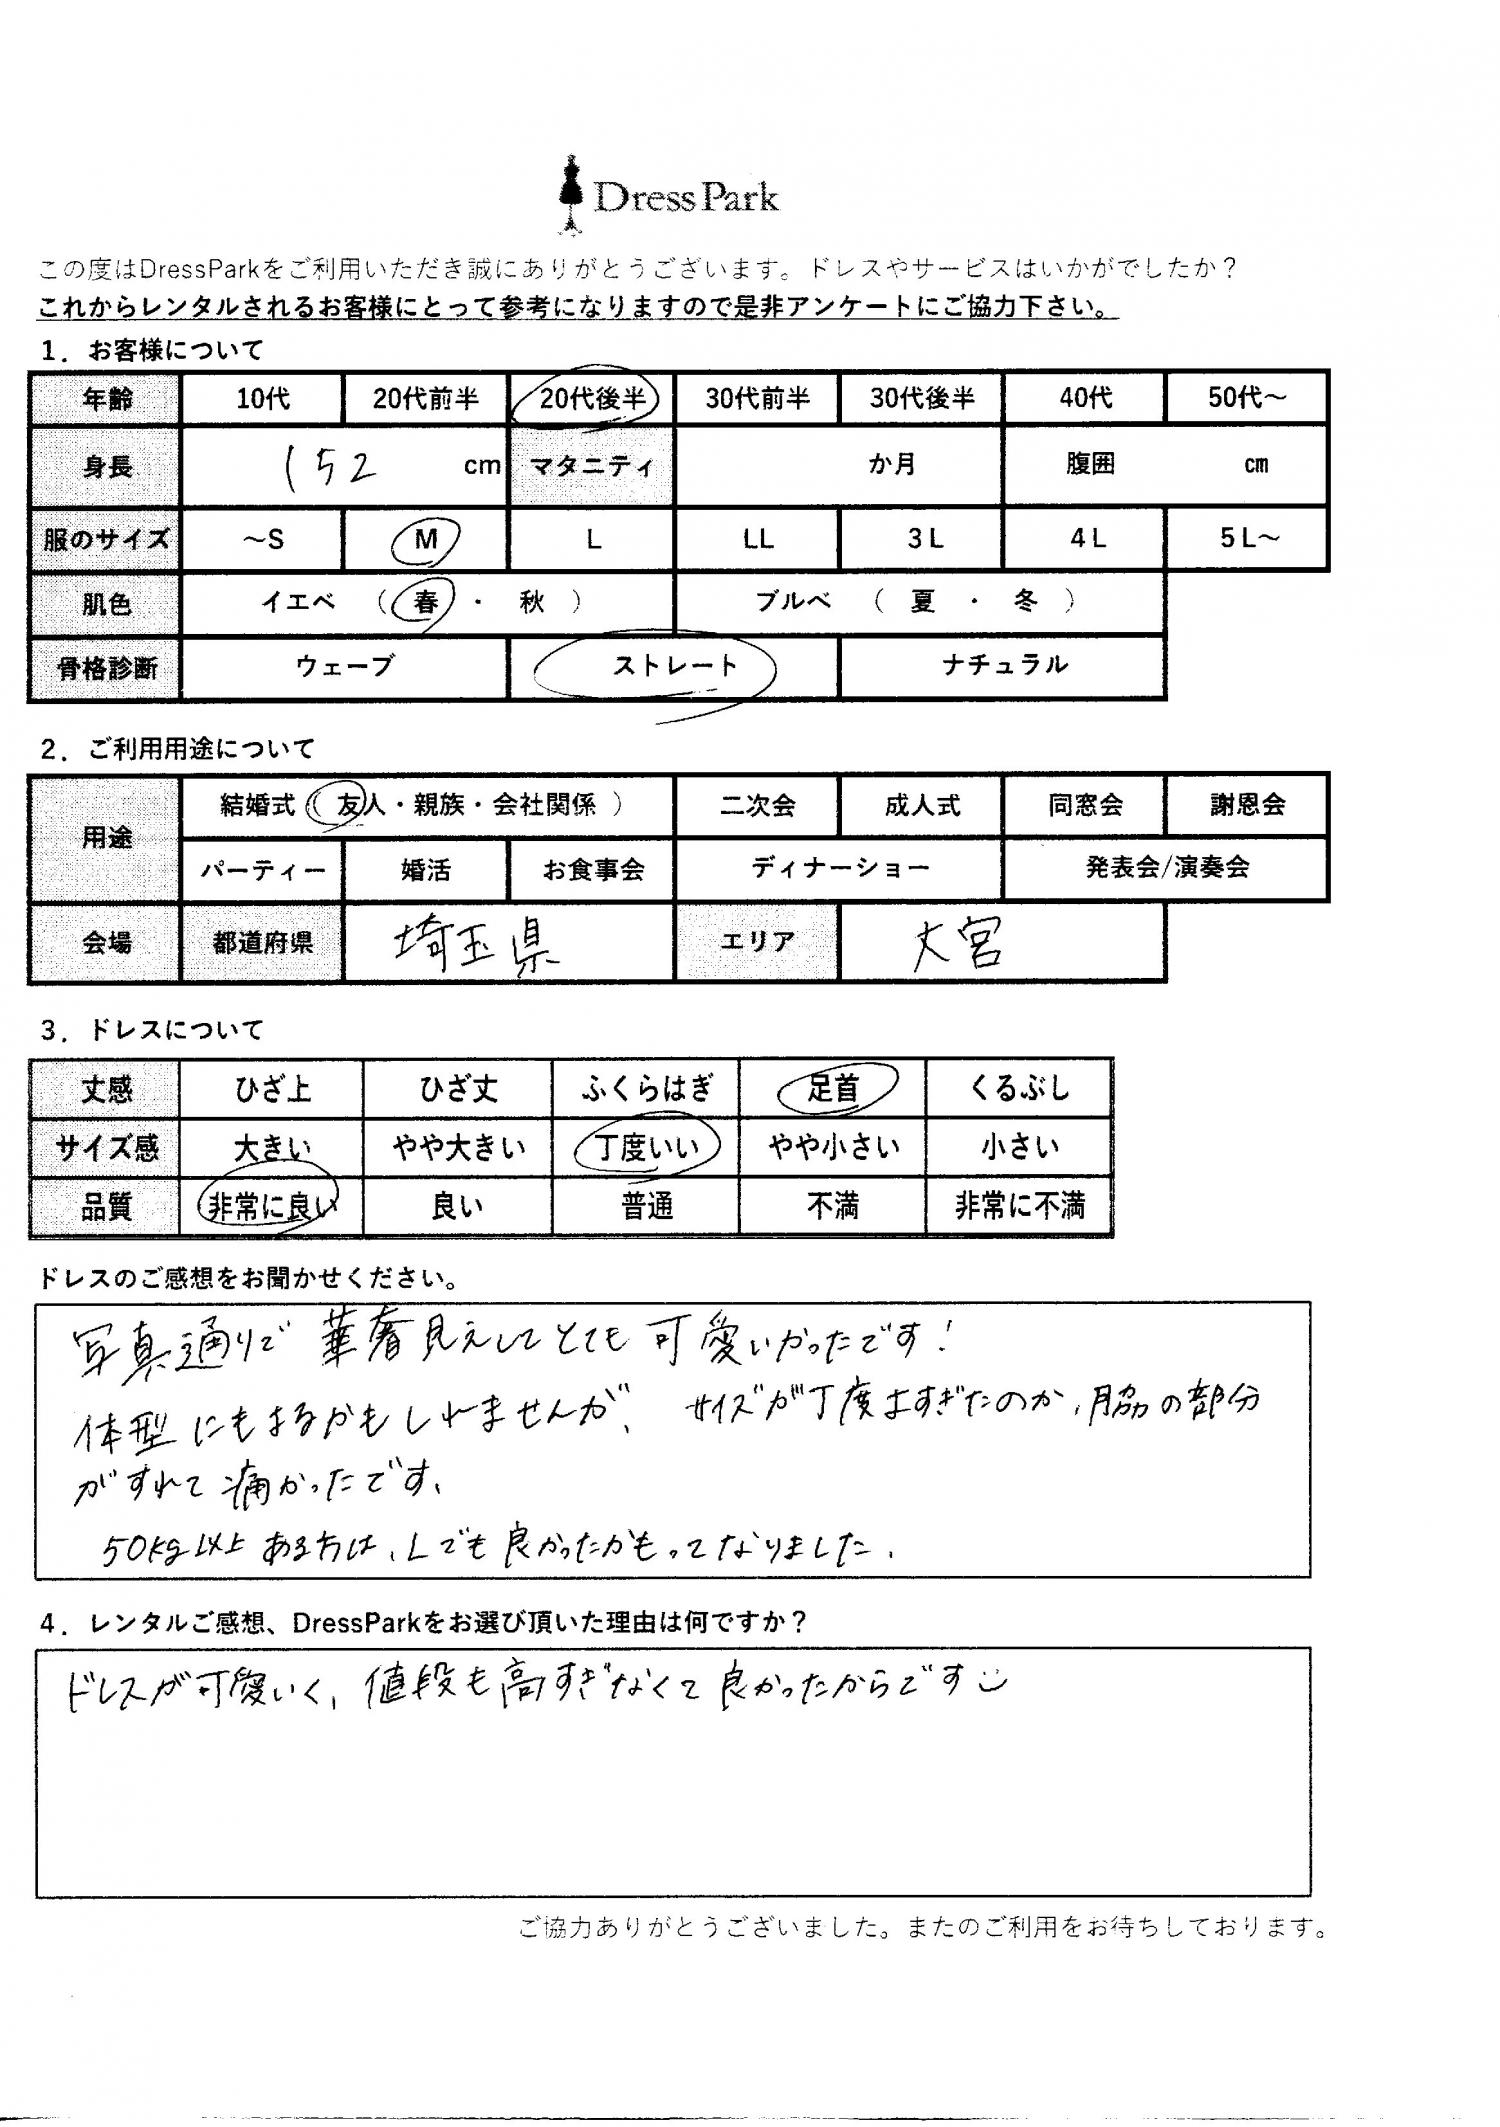 Dress Park
この度はDressParkをご利用いただき誠にありがとうございます。ドレスやサービスはいかがでしたか？
これからレンタルされるお客様にとって参考になりますので是非アンケートにご協力下さい。
1．お客様について
年齢 10代 20代前半 20代後半 30代前半 30代後半 40代 50代～
身長 152 cm マタニティ か月 腹囲 cm
服のサイズ ～S M L LL 3L 4L 5L～
肌色 イエベ （ 春 ・ 秋 ） ブルベ （ 夏 ・ 冬 ）
骨格診断 ウェーブ ストレート ナチュラル
2．ご利用用途について
用途 結婚式（ 友人・親族・会社関係 ） 二次会 成人式 同窓会 謝恩会
パーティー 婚活 お食事会 ディナーショー 発表会/演奏会
会場 都道府県 埼玉県 エリア 大宮
3．ドレスについて
丈感 ひざ上 ひざ丈 ふくらはぎ 足首 くるぶし
サイズ感 大きい やや大きい 丁度いい やや小さい 小さい
品質 非常に良い 良い 普通 不満 非常に不満
ドレスのご感想をお聞かせください。
写真通りで華奢見えしてとても可愛いかったです！
体型にもよるかもしれませんが、サイズが丁度よすぎたのか、脇の部分
がすれて痛かったです、
50kg以上ある方は、Lでも良かったかもってなりました、
4．レンタルご感想、DressParkをお選び頂いた理由は何ですか？
ドレスが可愛いく、値段も高すぎなくて良かったからです
ご協力ありがとうございました。またのご利用をお待ちしております。